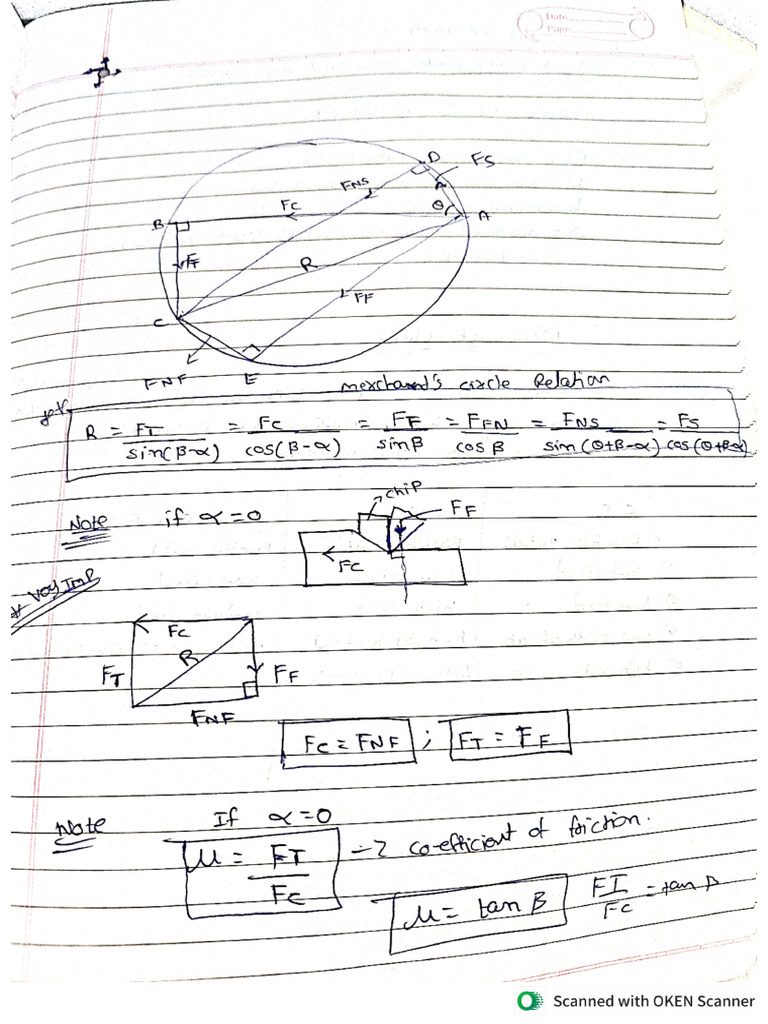 Date
Page
D
FS
FNS
Fc
θ
B
A
FT
R
FF
C
FNF
E
merchand's circle Relation
R = FT / sin(β-α) = Fc / cos(β-α) = FF / sinβ = FFN / cos β = FNS / sin(θ+β-α) = FS / cos(θ+β-α)
Note if α=0
chip
FF
Fc
* Very Imp
Fc
FT
R
FF
FNF
Fc = FNF ; FT = FF
Note If α=0
μ = FT / Fc → coefficient of friction.
μ = tan β FT / Fc = tan β
Scanned with OKEN Scanner